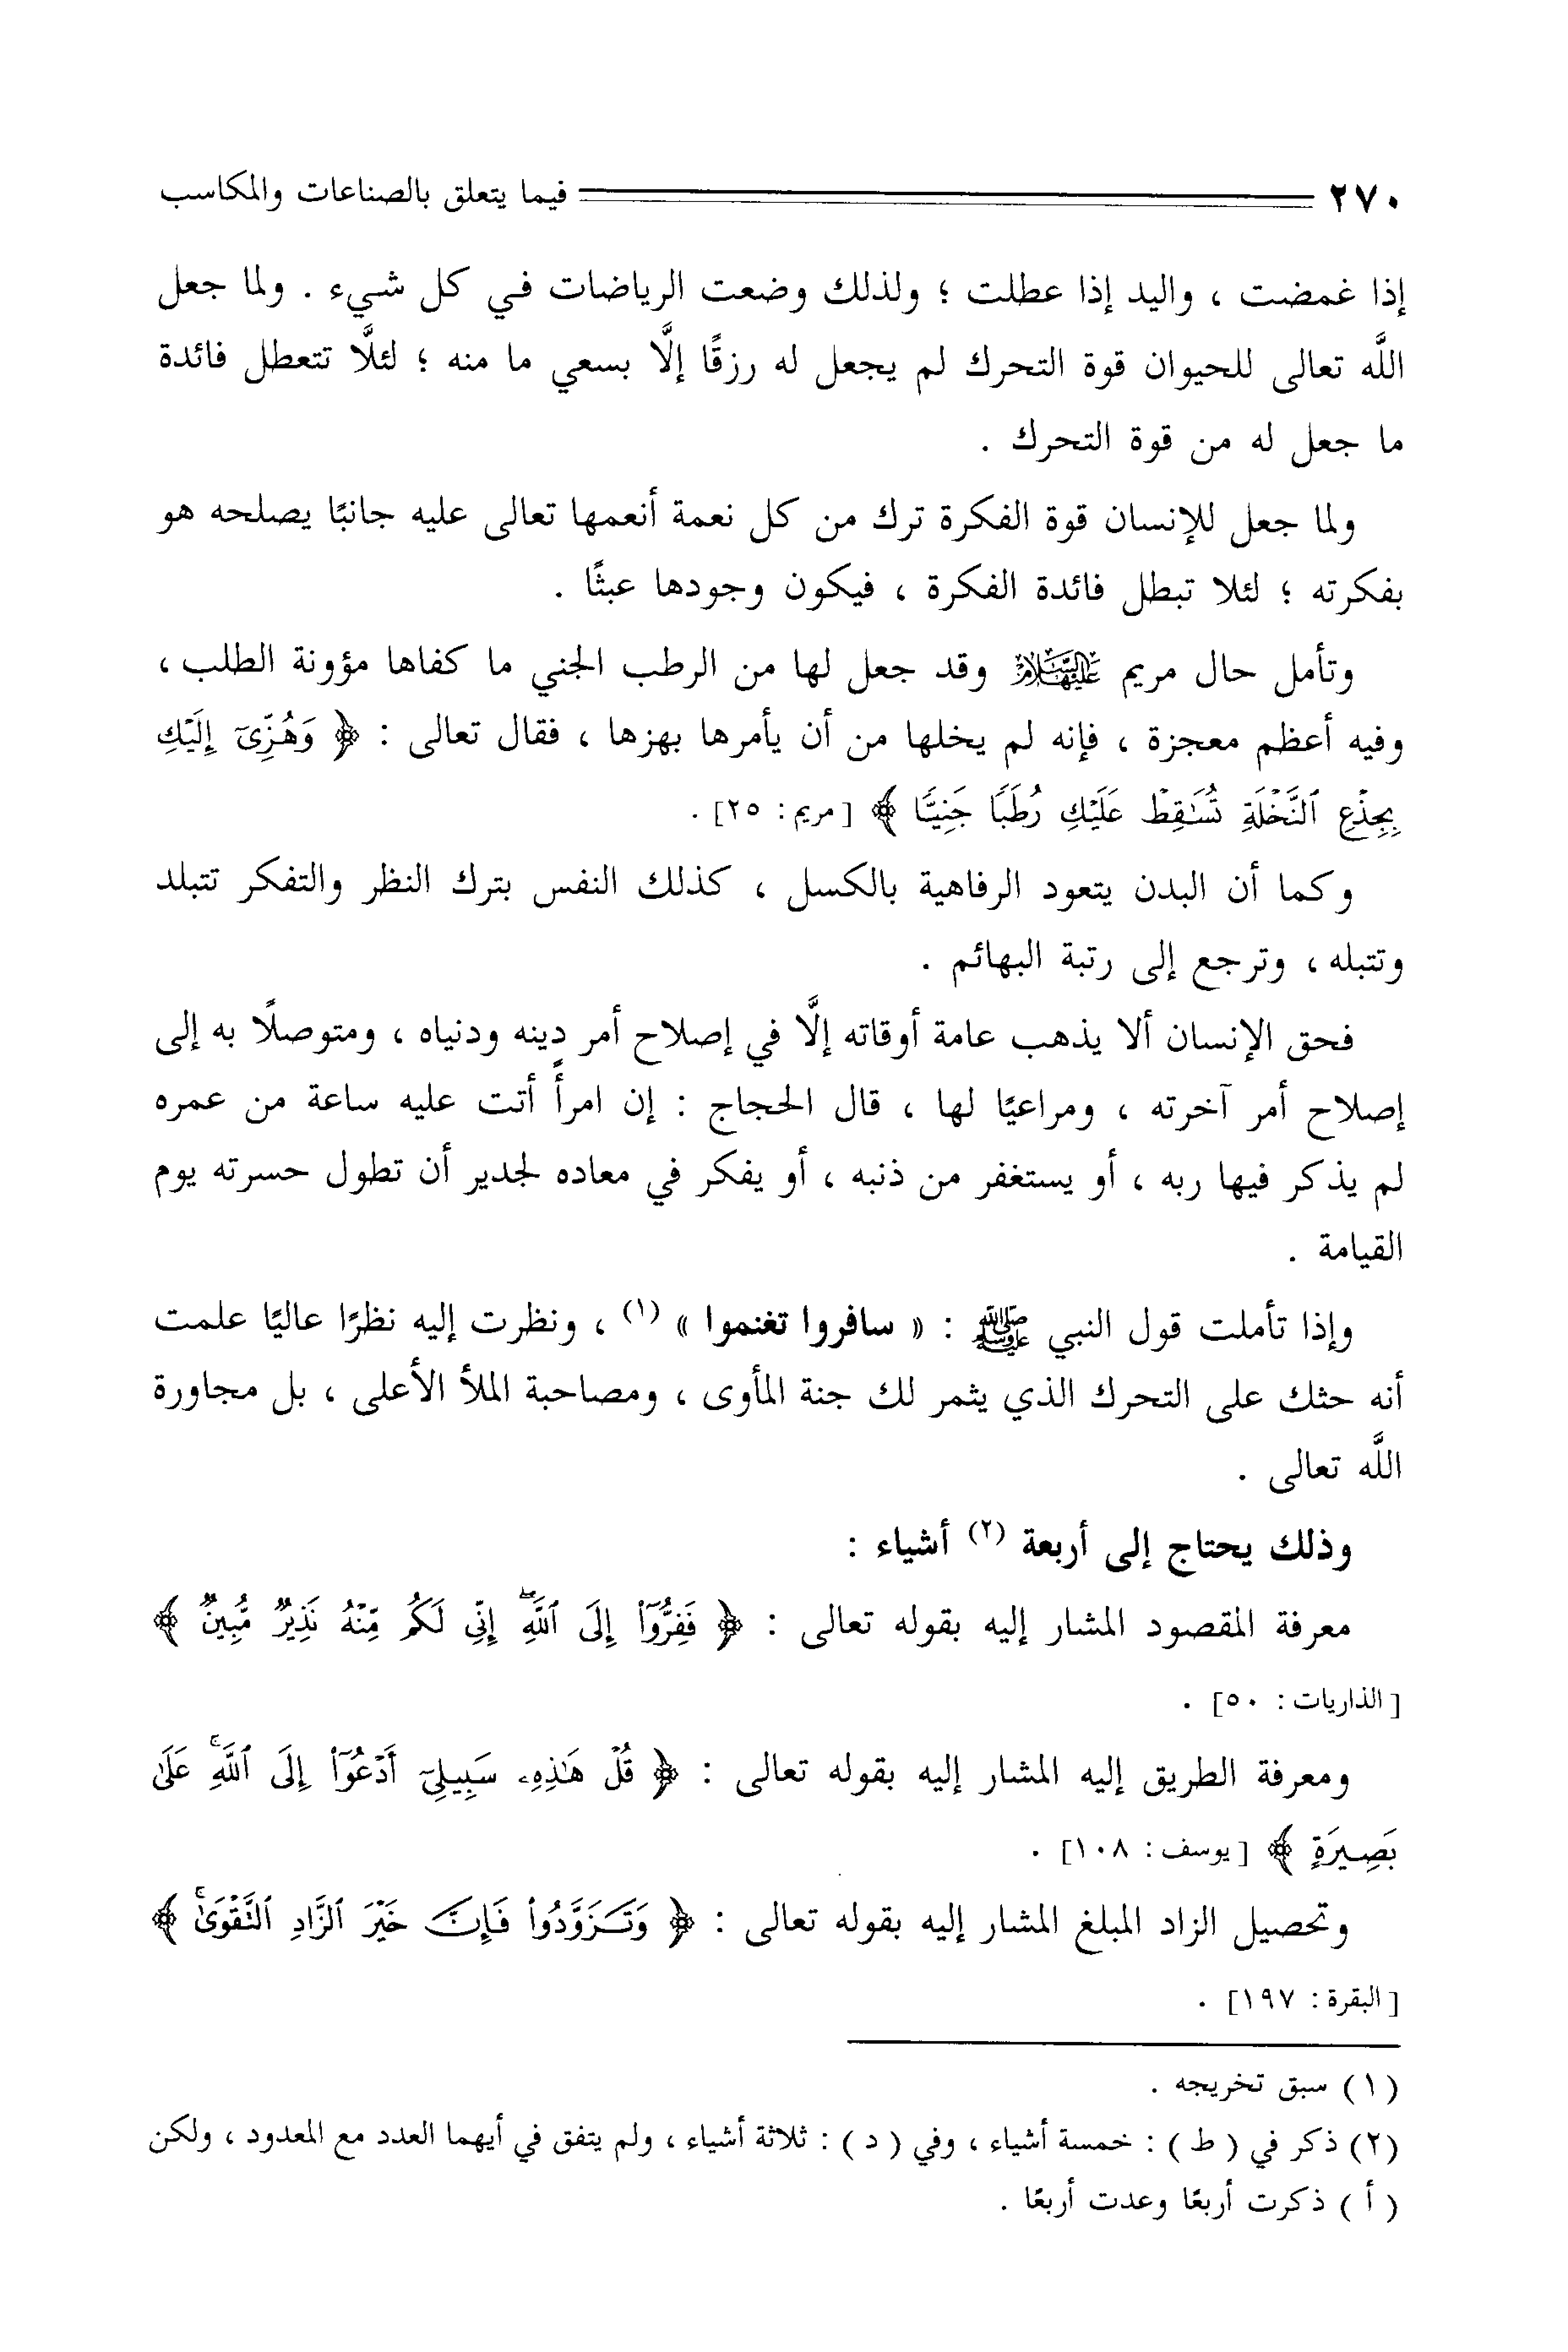 ٢٧٠ فيما يتعلق بالصناعات والمكاسب
إذا غمضت ، واليد إذا عطلت ؛ ولذلك وضعت الرياضات في كل شيء . ولما جعل
اللَّه تعالى للحيوان قوة التحرك لم يجعل له رزقًا إلَّا بسعي ما منه ؛ لئلَّا تتعطل فائدة
ما جعل له من قوة التحرك .
ولما جعل للإنسان قوة الفكرة ترك من كل نعمة أنعمها تعالى عليه جانبًا يصلحه هو
بفكرته ؛ لئلا تبطل فائدة الفكرة ، فيكون وجودها عبثًا .
وتأمل حال مريم عَلَيْهَا السَّلَامُ وقد جعل لها من الرطب الجني ما كفاها مؤونة الطلب ،
وفيه أعظم معجزة ، فإنه لم يخلها من أن يأمرها بهزها ، فقال تعالى : ﴿ وَهُزِّىٓ إِلَيْكِ
بِجِذْعِ ٱلنَّخْلَةِ تُسَٰقِطْ عَلَيْكِ رُطَبًا جَنِيًّا ﴾ [مريم: ٢٥] .
وكما أن البدن يتعود الرفاهية بالكسل ، كذلك النفس بترك النظر والتفكر تتبلد
وتتبله ، وترجع إلى رتبة البهائم .
فحق الإنسان ألا يذهب عامة أوقاته إلَّا في إصلاح أمر دينه ودنياه ، ومتوصلًا به إلى
إصلاح أمر آخرته ، ومراعيًا لها ، قال الحجاج : إن امرأً أتت عليه ساعة من عمره
لم يذكر فيها ربه ، أو يستغفر من ذنبه ، أو يفكر في معاده لجدير أن تطول حسرته يوم
القيامة .
وإذا تأملت قول النبي ﷺ : « سافروا تغنموا » (١) ، ونظرت إليه نظرًا عاليًا علمت
أنه حثك على التحرك الذي يثمر لك جنة المأوى ، ومصاحبة الملأ الأعلى ، بل مجاورة
اللَّه تعالى .
وذلك يحتاج إلى أربعة (٢) أشياء :
معرفة المقصود المشار إليه بقوله تعالى : ﴿ فَفِرُّوٓا۟ إِلَى ٱللَّهِ ۖ إِنِّى لَكُم مِّنْهُ نَذِيرٌ مُّبِينٌ ﴾
[الذاريات: ٥٠] .
ومعرفة الطريق إليه المشار إليه بقوله تعالى : ﴿ قُلْ هَٰذِهِۦ سَبِيلِىٓ أَدْعُوٓا۟ إِلَى ٱللَّهِ ۚ عَلَىٰ
بَصِيرَةٍ ﴾ [يوسف: ١٠٨] .
وتحصيل الزاد المبلغ المشار إليه بقوله تعالى : ﴿ وَتَزَوَّدُوا۟ فَإِنَّ خَيْرَ ٱلزَّادِ ٱلتَّقْوَىٰ ۚ ﴾
[البقرة: ١٩٧] .
(١) سبق تخريجه .
(٢) ذكر في ( ط ) : خمسة أشياء ، وفي ( د ) : ثلاثة أشياء ، ولم يتفق في أيهما العدد مع المعدود ، ولكن
( أ ) ذكرت أربعًا وعدت أربعًا .